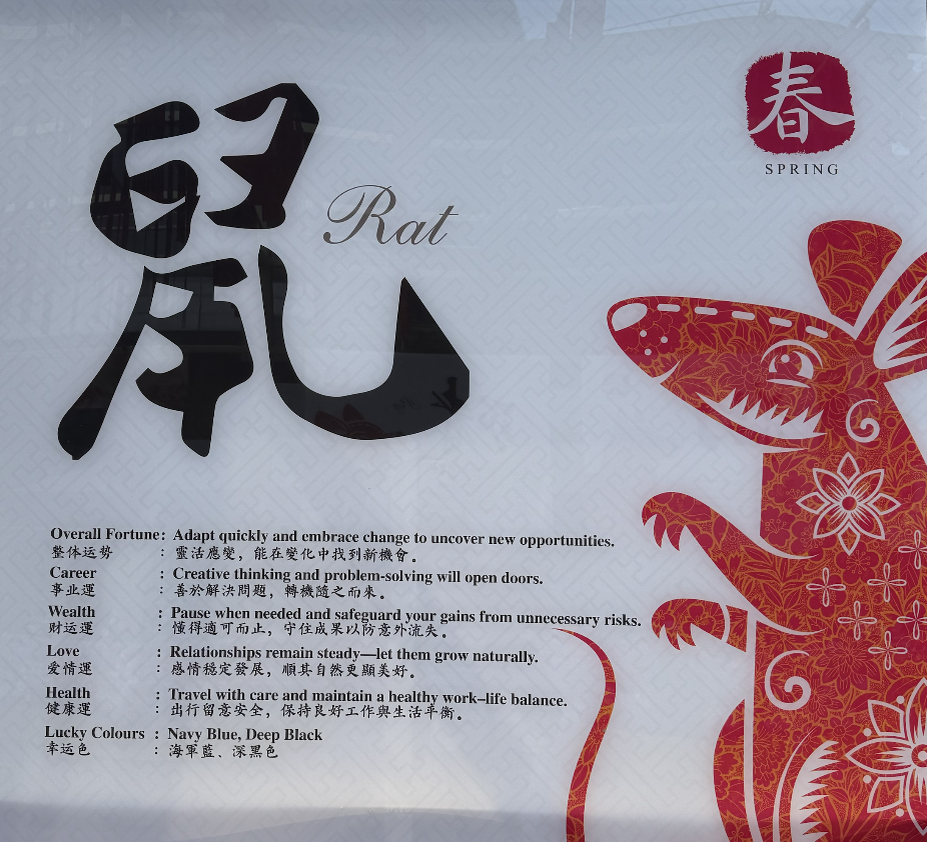 春
SPRING
鼠
Rat
Overall Fortune: Adapt quickly and embrace change to uncover new opportunities.
整体运势 : 靈活應變，能在變化中找到新機會。
Career : Creative thinking and problem-solving will open doors.
事业運 : 善於解決問題，轉機隨之而來。
Wealth : Pause when needed and safeguard your gains from unnecessary risks.
财运運 : 懂得適可而止，守住成果以防意外流失。
Love : Relationships remain steady—let them grow naturally.
爱情運 : 感情穩定發展，順其自然更顯美好。
Health : Travel with care and maintain a healthy work–life balance.
健康運 : 出行留意安全，保持良好工作與生活平衡。
Lucky Colours : Navy Blue, Deep Black
幸运色 : 海軍藍、深黑色